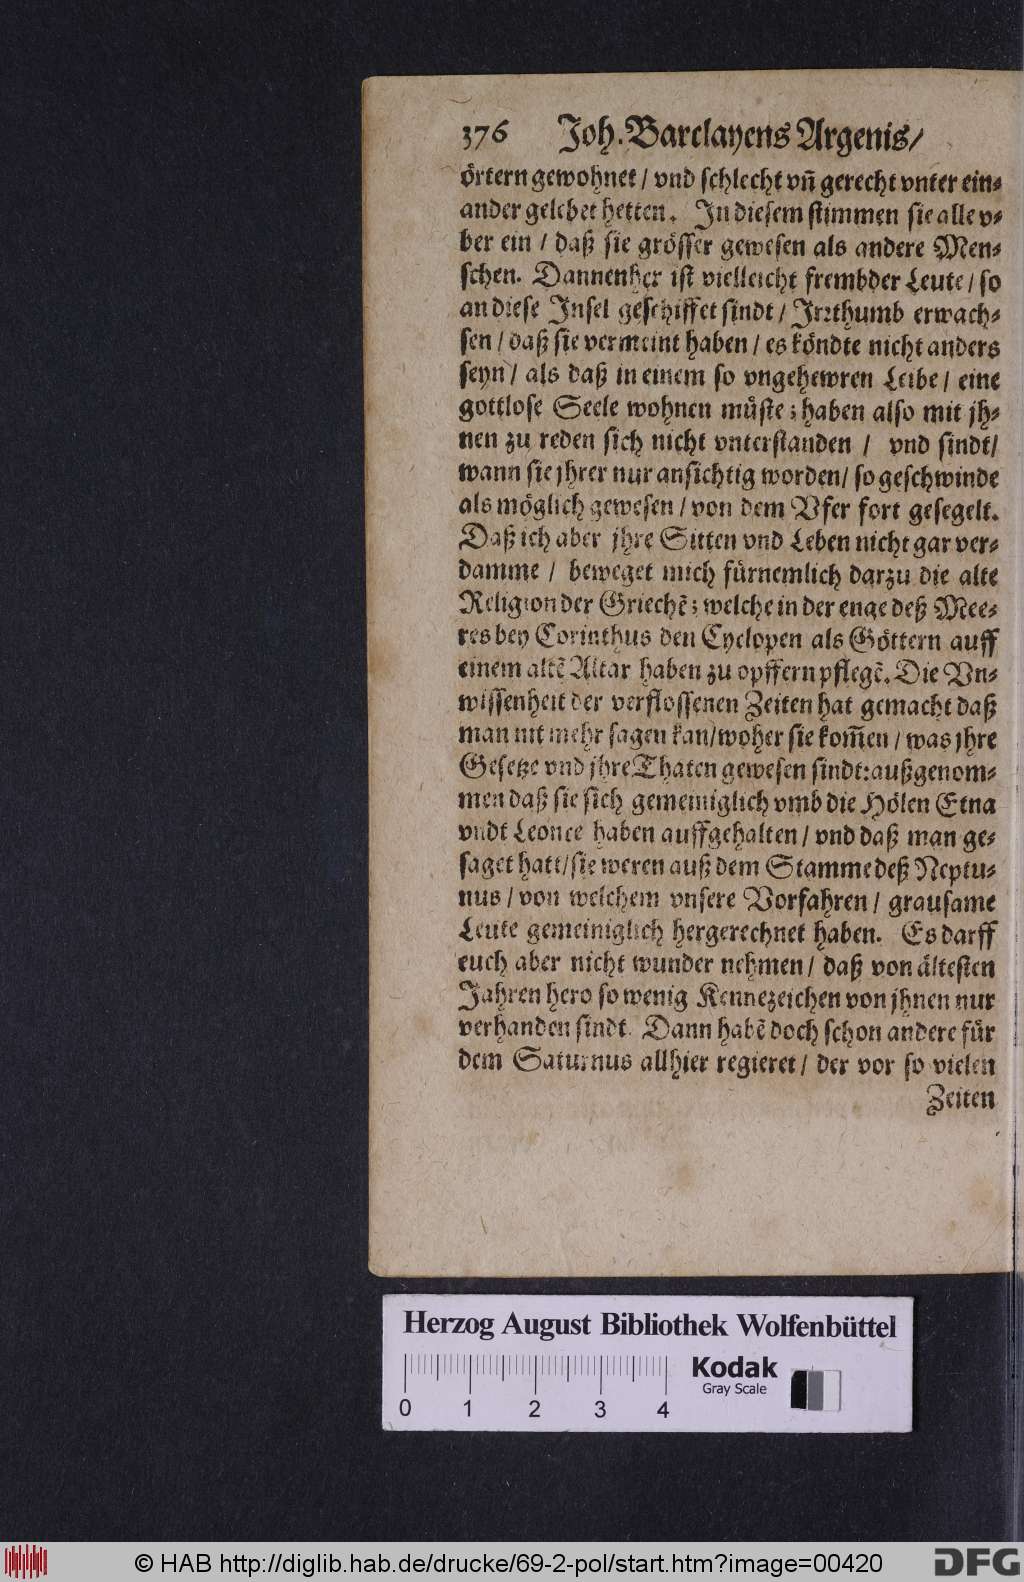 376 Joh. Barclayens Argenis/
örtern gewohnet / vnd schlecht vñ gerecht vnter ein⸗
ander gelebet hetten. In diesem stimmen sie alle v⸗
ber ein / daß sie grösser gewesen als andere Men⸗
schen. Dannenher ist vielleicht frembder Leute / so
an diese Insel geschiffet sindt / Irrthumb erwach⸗
sen / daß sie vermeint haben / es köndte nicht anders
seyn / als daß in einem so vngehewren Leibe / eine
gottlose Seele wohnen müste; haben also mit jh⸗
nen zu reden sich nicht vnterstanden / vnd sindt/
wann sie jhrer nur ansichtig worden / so geschwinde
als möglich gewesen / von dem Vfer fort gesegelt.
Daß ich aber jhre Sitten vnd Leben nicht gar ver⸗
damme / beweget mich fürnemlich darzu die alte
Religion der Griechẽ; welche in der enge deß Mee⸗
res bey Corinthus den Cyclopen als Göttern auff
einem altẽ Altar haben zu opffern pflegẽ. Die Vn⸗
wissenheit der verflossenen Zeiten hat gemacht daß
man nit mehr sagen kan/woher sie kom̃en / was jhre
Gesetze vnd jhre Thaten gewesen sindt: außgenom⸗
men daß sie sich gemeiniglich vmb die Hölen Etna
vndt Leonce haben auffgehalten / vnd daß man ge⸗
saget hatt/sie weren auß dem Stamme deß Neptu⸗
nus / von welchem vnsere Vorfahren / grausame
Leute gemeiniglich hergerechnet haben. Es darff
euch aber nicht wunder nehmen / daß von ältesten
Jahren hero so wenig Kennezeichen von jhnen nur
verhanden sindt. Dann habẽ doch schon andere für
dem Saturnus allhier regieret / der vor so vielen
Zeiten
Herzog August Bibliothek Wolfenbüttel
Kodak
Gray Scale
0 1 2 3 4
© HAB http://diglib.hab.de/drucke/69-2-pol/start.htm?image=00420
DFG